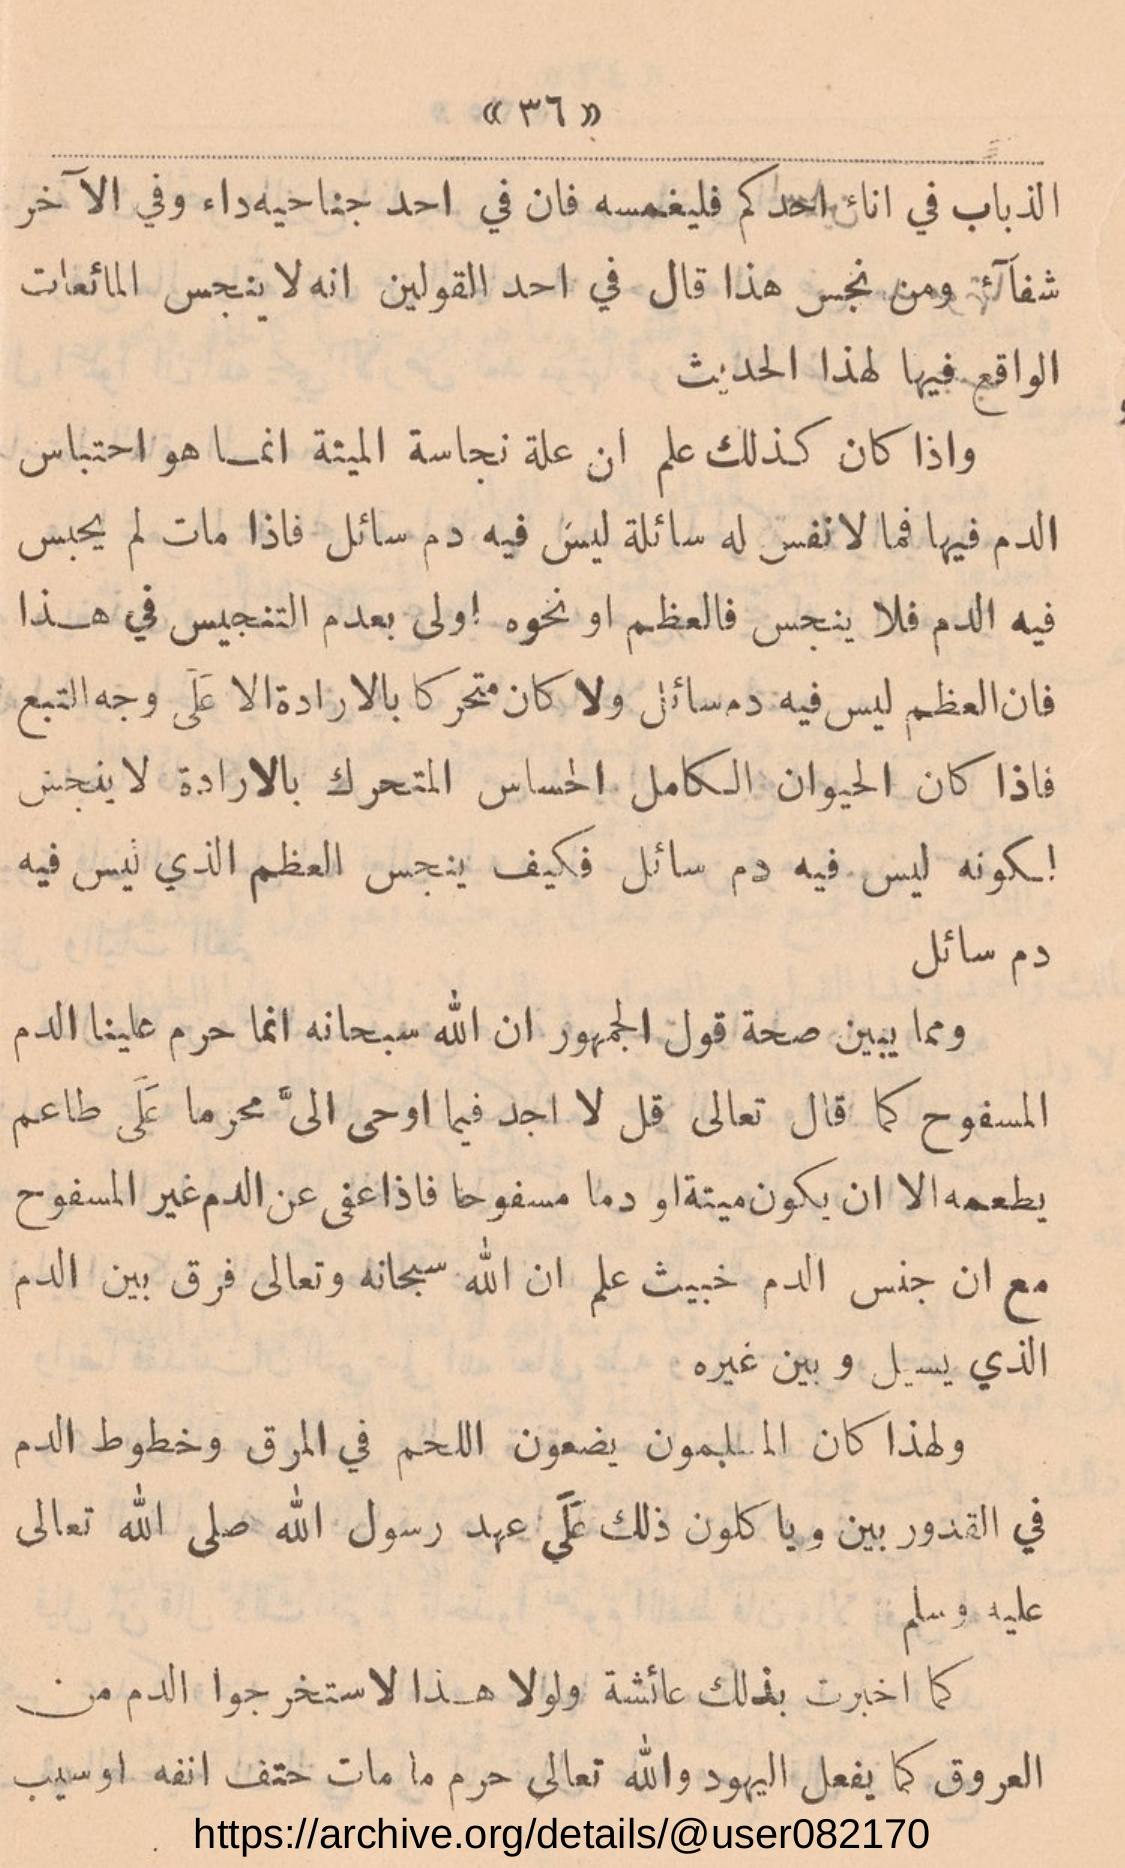 « ٣٦ »
الذباب في انائ احدكم فليغمسه فان في احد جناحيه داء وفي الآخر
شفآئ ومن نجس هذا قال في احد القولين انه لا ينجس المائعات
الواقع فيها لهذا الحديث
واذا كان كذلك علم ان علة نجاسة الميتة انمـا هو احتباس
الدم فيها فما لا نفس له سائلة ليس فيه دم سائل فاذا مات لم يحبس
فيه الدم فلا ينجس فالعظم او نحوه اولى بعدم التنجيس في هـذا
فان العظم ليس فيه دم سائل ولا كان متحركا بالارادة الا عَلَى وجه التبع
فاذا كان الحيوان الكامل الحساس المتحرك بالارادة لا ينجس
لكونه ليس فيه دم سائل فكيف ينجس العظم الذي ليس فيه
دم سائل
ومما يبين صحة قول الجمهور ان الله سبحانه انما حرم علينا الدم
المسفوح كما قال تعالى قل لا اجد فيما اوحى الىَّ محرما عَلَى طاعم
يطعمه الا ان يكون ميتة او دما مسفوحا فاذا عفى عن الدم غير المسفوح
مع ان جنس الدم خبيث علم ان الله سبحانه وتعالى فرق بين الدم
الذي يسيل و بين غيره
ولهذا كان المسلمون يضعون اللحم في المرق وخطوط الدم
في القدور بين و ياكلون ذلك عَلَى عهد رسول الله صلى الله تعالى
عليه وسلم
كما اخبرت بذلك عائشة ولولا هـذا لاستخرجوا الدم من
العروق كما يفعل اليهود والله تعالى حرم ما مات حتف انفه او سبب
https://archive.org/details/@user082170